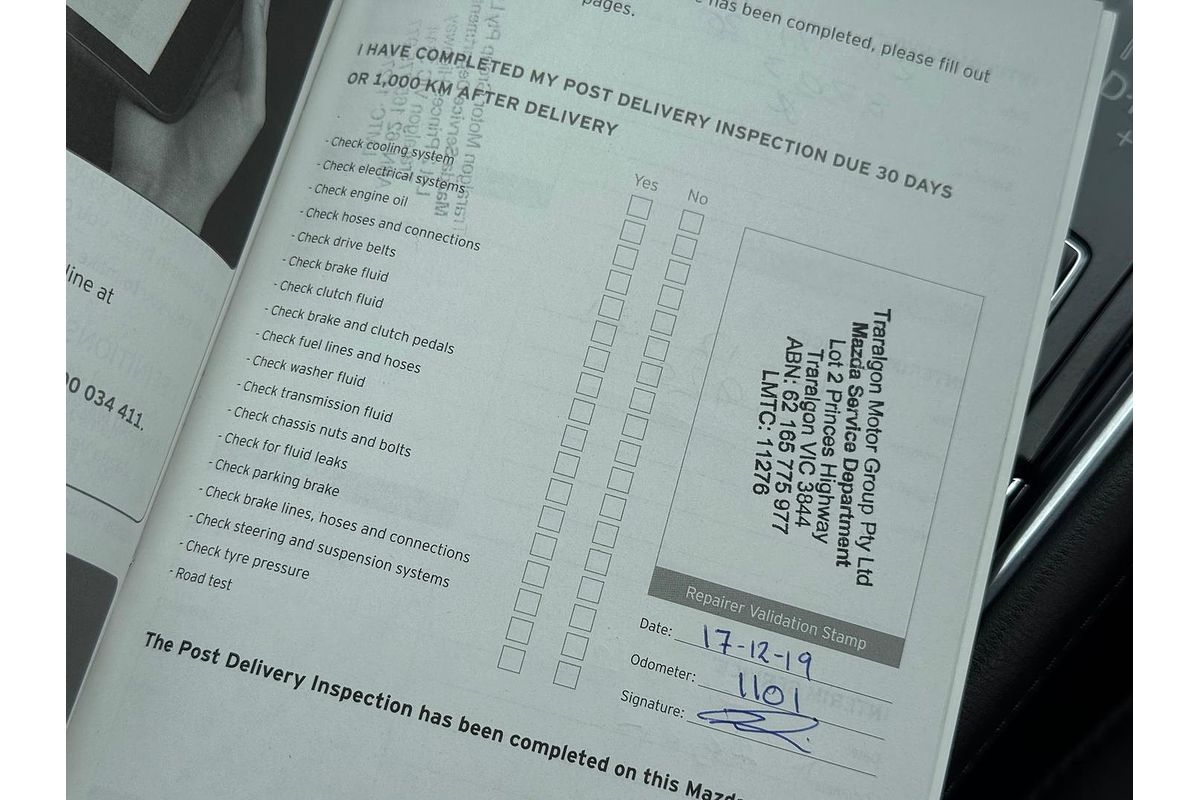 pages.
has been completed, please fill out
I HAVE COMPLETED MY POST DELIVERY INSPECTION DUE 30 DAYS
OR 1,000 KM AFTER DELIVERY
Yes No
- Check cooling system
- Check electrical systems
- Check engine oil
- Check hoses and connections
- Check drive belts
- Check brake fluid
- Check clutch fluid
- Check brake and clutch pedals
- Check fuel lines and hoses
- Check washer fluid
- Check transmission fluid
- Check chassis nuts and bolts
- Check for fluid leaks
- Check parking brake
- Check brake lines, hoses and connections
- Check steering and suspension systems
- Check tyre pressure
- Road test
Traralgon Motor Group Pty Ltd
Mazda Service Department
Lot 2 Princes Highway
Traralgon VIC 3844
ABN: 62 165 775 977
LMTC: 11276
Repairer Validation Stamp
Date: 17-12-19
Odometer: 1101
Signature:
The Post Delivery Inspection has been completed on this Mazda
line at
034 411.